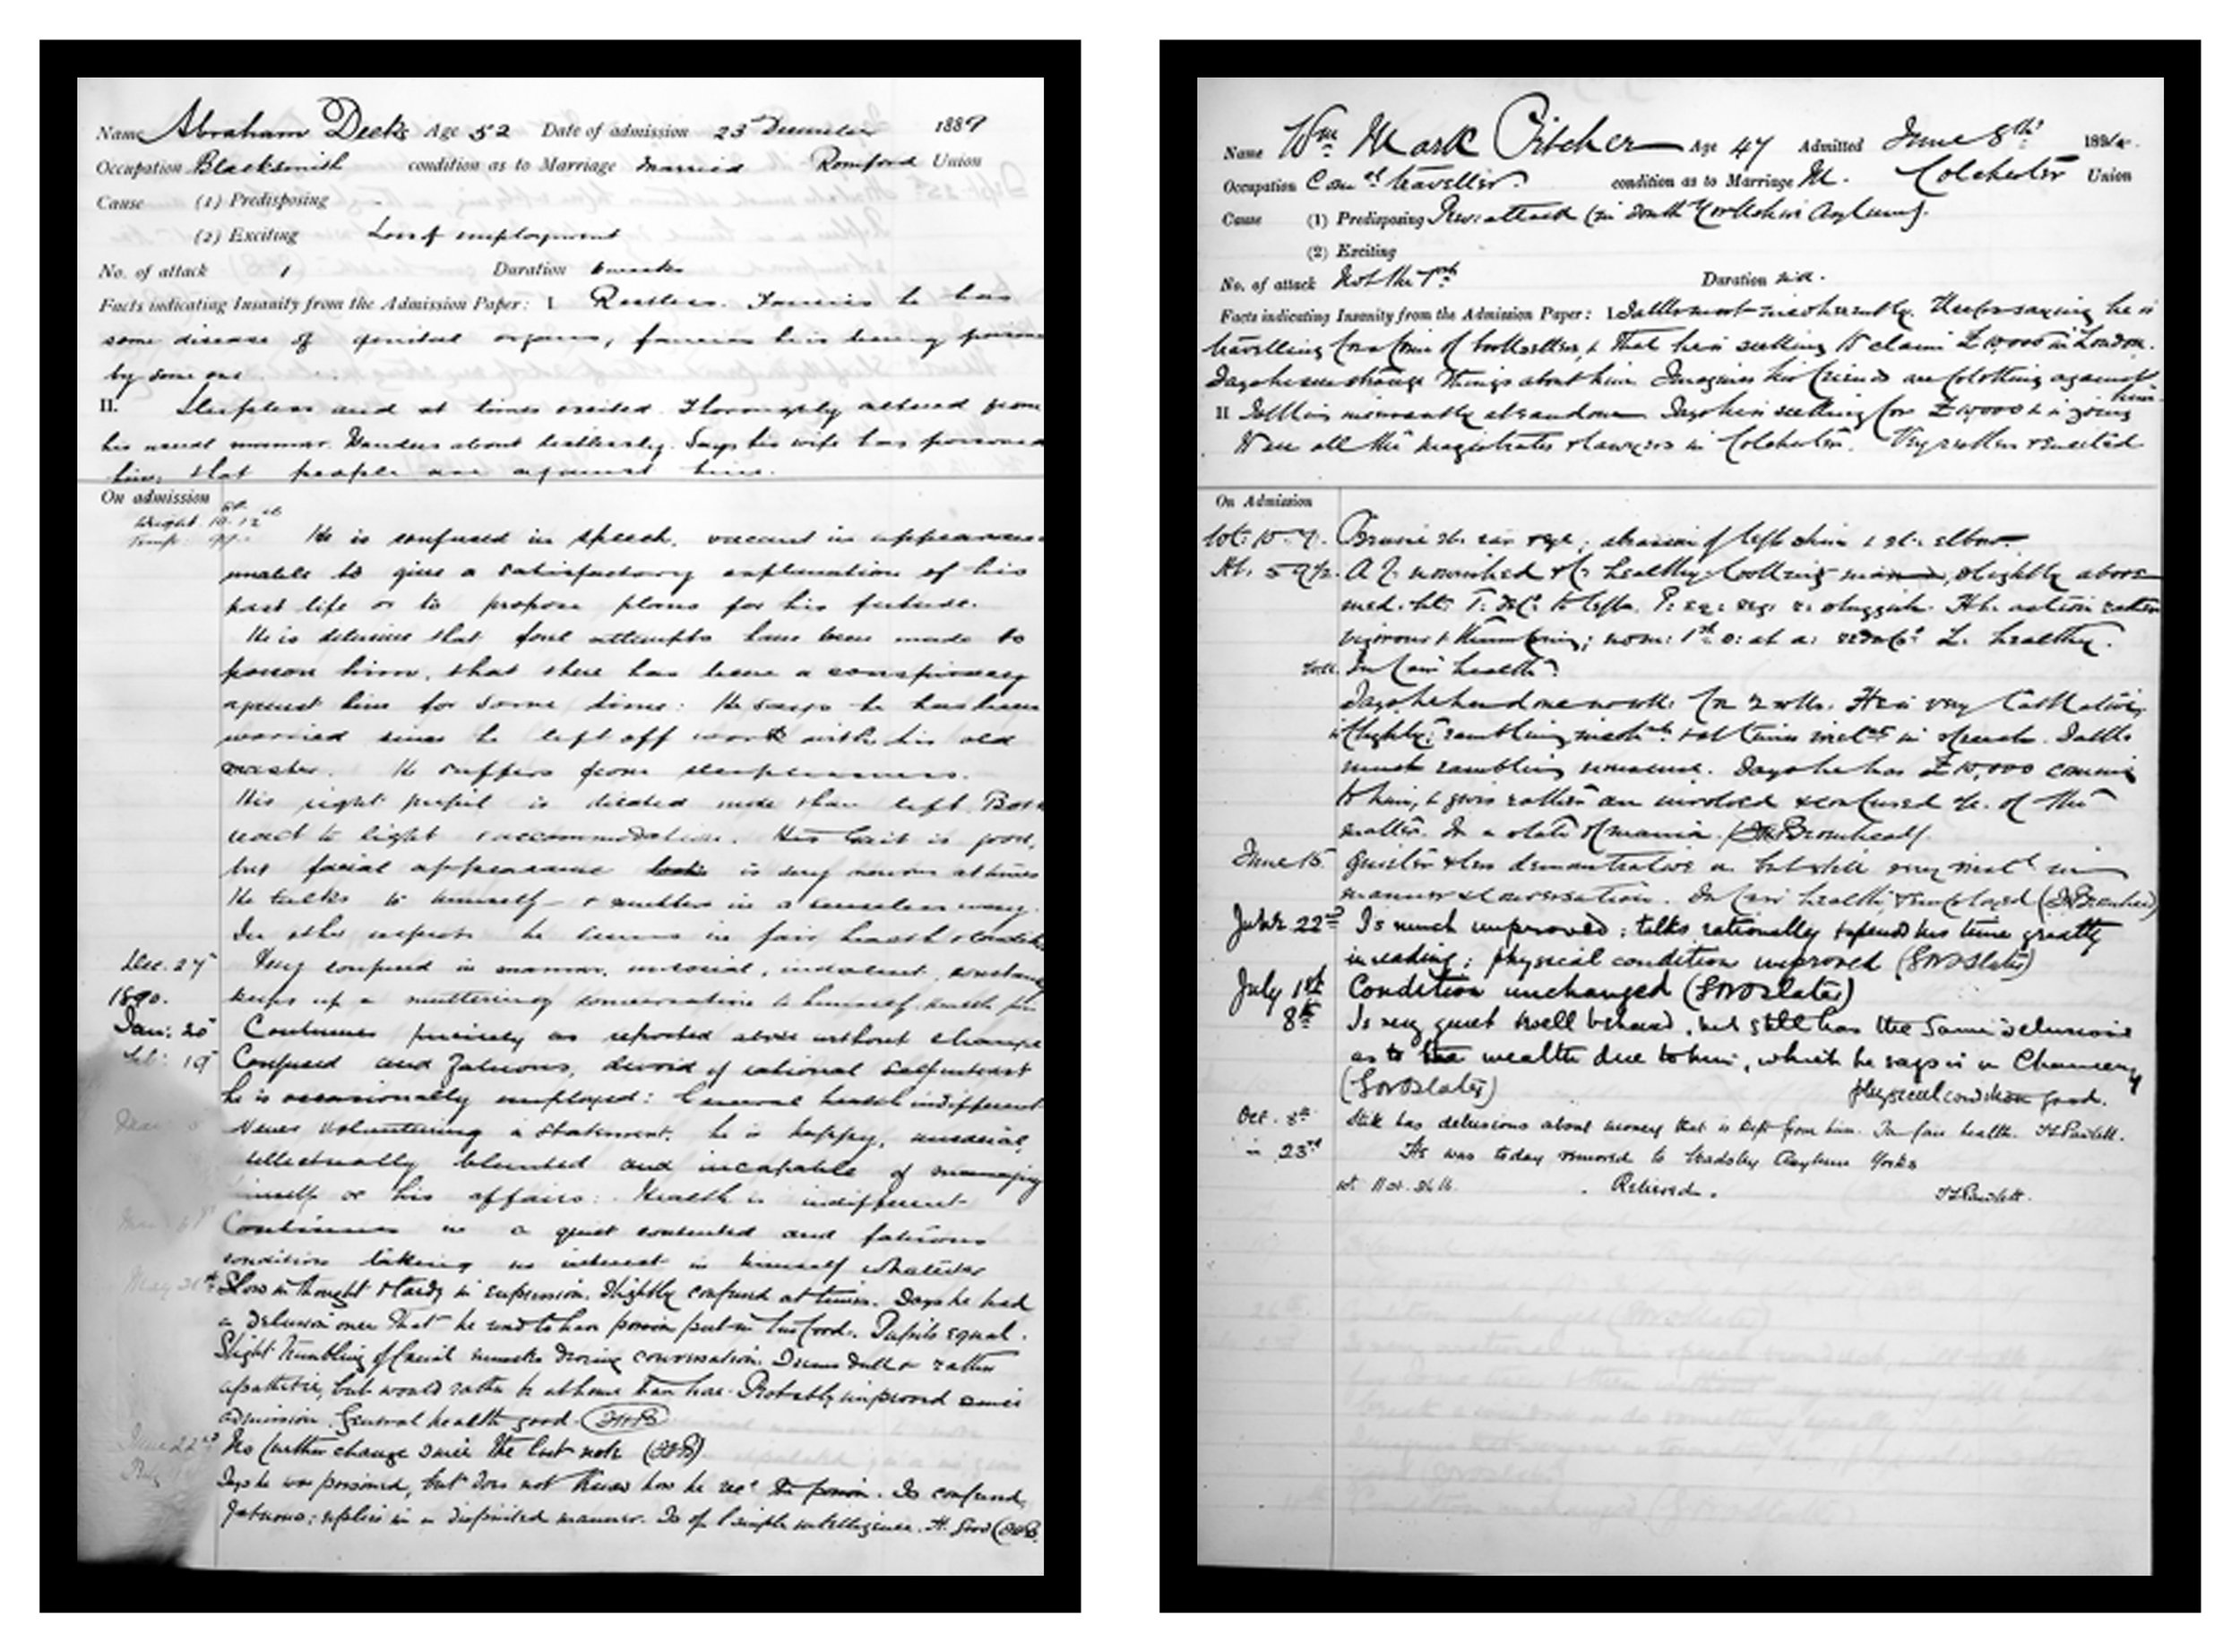 Name Abraham Deeks Age 52 Date of admission 23 December 1889
Occupation Blacksmith condition as to Marriage Married Romford Union
Cause (1) Predisposing -
(2) Exciting Loss of employment
No. of attack 1 Duration 6 weeks
Facts indicating Insanity from the Admission Paper: I Restless. Fancies he has
some disease of genital organs, fancies he is being poisoned
by some one.
II. Sleepless and at times excited. Thoroughly altered from
his usual manner. Wanders about listlessly. Says his wife has poisoned
him, that people are against him.
On admission
Weight 10. 12
Temp.
He is confused in speech, vacant in appearance
unable to give a satisfactory explanation of his
past life or to propose plans for his future.
He is delusive that foul attempts have been made to
poison him, that there has been a conspiracy
against him for some time: He says he has been
worried since he left off work with his old
master. He suffers from sleeplessness.
His right pupil is dilated more than left. Both
react to light & accommodation. His Gait is good,
but facial appearance is very nervous at times
He talks to himself & mutters in a senseless way.
In other respects he seems in fair health &
Dec. 27 Very confused in manner, unsocial, indolent, constantly
1890. keeps up a muttering conversation to himself. Health fair
Jan: 20 Continues precisely as reported above without change
Feb: 19 Confused and Fatuous, devoid of rational Self interest
he is occasionally employed: General health indifferent
Never volunteering a Statement. he is happy, unsocial,
intellectually blunted and incapable of managing
himself or his affairs: Health is indifferent
Continues in a quiet contented and fatuous
condition taking no interest in himself whatever
May Slow in thought & tardy in expression. Slightly confused at times. Says he had
a delusion once that he used to have poison put in his food. Pupils equal.
Slight trembling of facial muscles during conversation. Seems dull & rather
apathetic, but would rather be at home than here. Probably improved since
admission. General health good.
June 22nd No further change since the last note
July Says he was poisoned, but does not know how he recd the poison. Is confused,
fatuous; replies in a disjointed manner. Is of simple intelligence. H. Good
Name Wm Mark Pitcher Age 47 Admitted June 8th 189
Occupation Comcl traveller. condition as to Marriage M. Colchester Union
Cause (1) Predisposing Prev: attack (in South Yorkshire Asylum).
(2) Exciting
No. of attack Not the 1st Duration
Facts indicating Insanity from the Admission Paper: I Talks most incoherently. Keeps saying he is
travelling for a firm of booksellers, & that he is seeking to claim £10,000 in London.
Says he sees strange things about him. Imagines his friends are plotting against
him.
II Talking incessantly at random. Says he is seeking for £10,000 & is going
to see all the magistrates & lawyers in Colchester. Very restless & excited
On Admission
Wt: 10-7. Bruise rt. ear & eye; abrasion of left shin & rt: elbow.
Ht. 5 9½. A f. nourished & f. healthy looking man, slightly above
med. ht: T: to left. P: eq: reg: r: sluggish. Ht. action rather
vigorous & thumping; L. healthy.
In fair health.
Says he had done no work for 2 wks. He is very talkative,
flighty, rambling & at times in speech. Talks
much rambling nonsense. Says he has £10,000 coming
to him, & gives rather an involved & confused a/c. of the
matter. In a state of mania. (Bromhead).
June 15 Quieter & less demonstrative but still very in
manner & conversation. In fair health, & employed
22nd Is much improved; talks rationally & spends his time greatly
in reading; physical condition improved (Slater)
July 1st Condition unchanged (Slater)
8th Is very quiet & well behaved, but still has the same delusions
as to the wealth due to him, which he says is in Chancery
(Slater) Physical condition good.
Oct. 8th Still has delusions about money that is kept from him. In fair health.
" 23rd He was today removed to Wadsley Asylum Yorks
wt. Relieved.